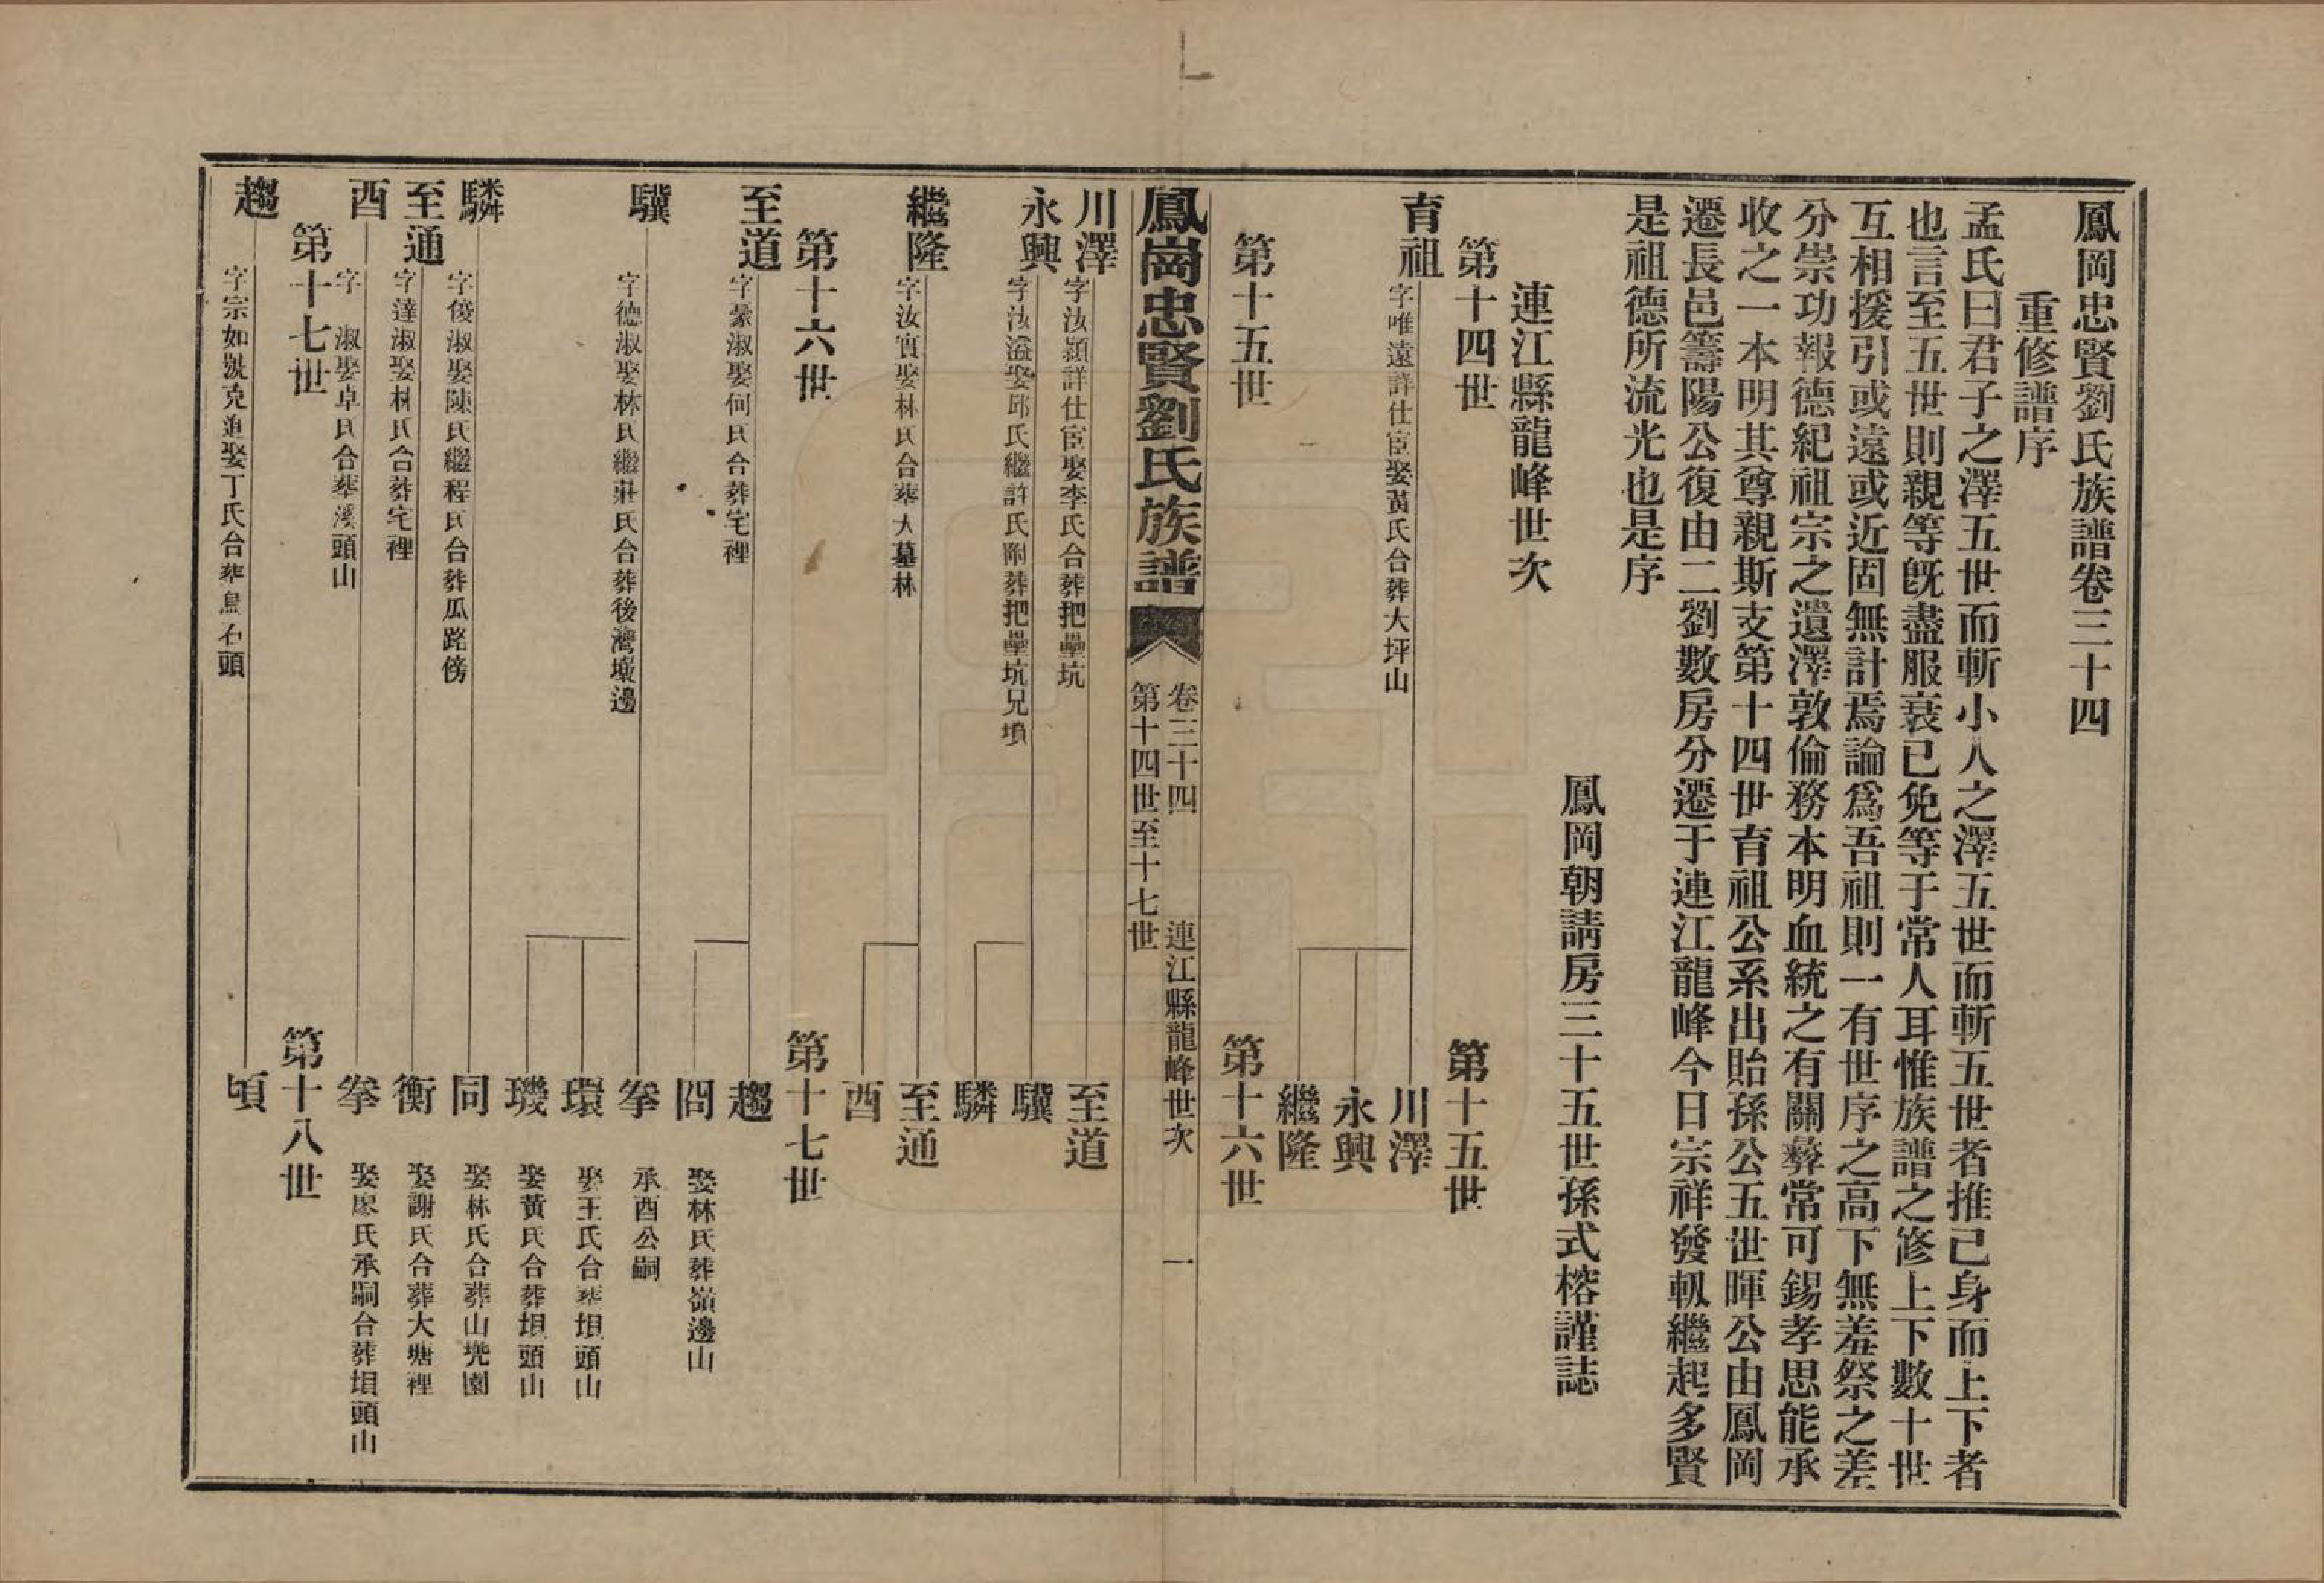 鳳岡忠賢劉氏族譜卷三十四
重修譜序
孟氏曰君子之澤五世而斬小人之澤五世而斬五世者推己身而上下者
也言至五世則親等旣盡服衰已免等于常人耳惟族譜之修上下數十世
互相援引或遠或近固無計焉論爲吾祖則一有世序之高下無羞祭之差
分崇功報德紀祖宗之遺澤敦倫務本明血統之有關彝常可錫孝思能承
收之一本明其尊親斯支第十四世育祖公系出貽孫公五世暉公由鳳岡
遷長邑籌陽公復由二劉數房分遷于連江龍峰今日宗祥發軔繼起多賢
是祖德所流光也是序
鳳岡朝請房三十五世孫式榕謹誌
連江縣龍峰世次
第十四世
第十五世
育祖
字唯遠詳仕宦娶黃氏合葬大坪山
川澤
永興
繼隆
第十五世
第十六世
鳳崗忠賢劉氏族譜
卷三十四
連江縣龍峰世次
一
第十四世至十七世
川澤
字汝穎詳仕宦娶李氏合葬把壘坑
至道
永興
字汝溢娶邱氏繼許氏附葬把壘坑兄墳
驥
驎
繼隆
字汝實娶林氏合葬大墓林
至通
酉
第十六世
第十七世
至道
字豪淑娶何氏合葬宅裡
趨
囧
娶林氏葬嶺邊山
驥
字德淑娶林氏繼莊氏合葬後灣壠邊
拳
承酉公嗣
環
娶王氏合葬垻頭山
璣
娶黃氏合葬垻頭山
驎
字俊淑娶陳氏繼程氏合葬瓜路傍
同
娶林氏合葬山兠園
至通
字達淑娶林氏合葬宅裡
衡
娶謝氏合葬大塘裡
酉
字 淑娶卓氏合葬溪頭山
拳
娶廖氏承嗣合葬垻頭山
第十七世
第十八世
趨
字宗如諡克迪娶丁氏合葬烏石頭
頃